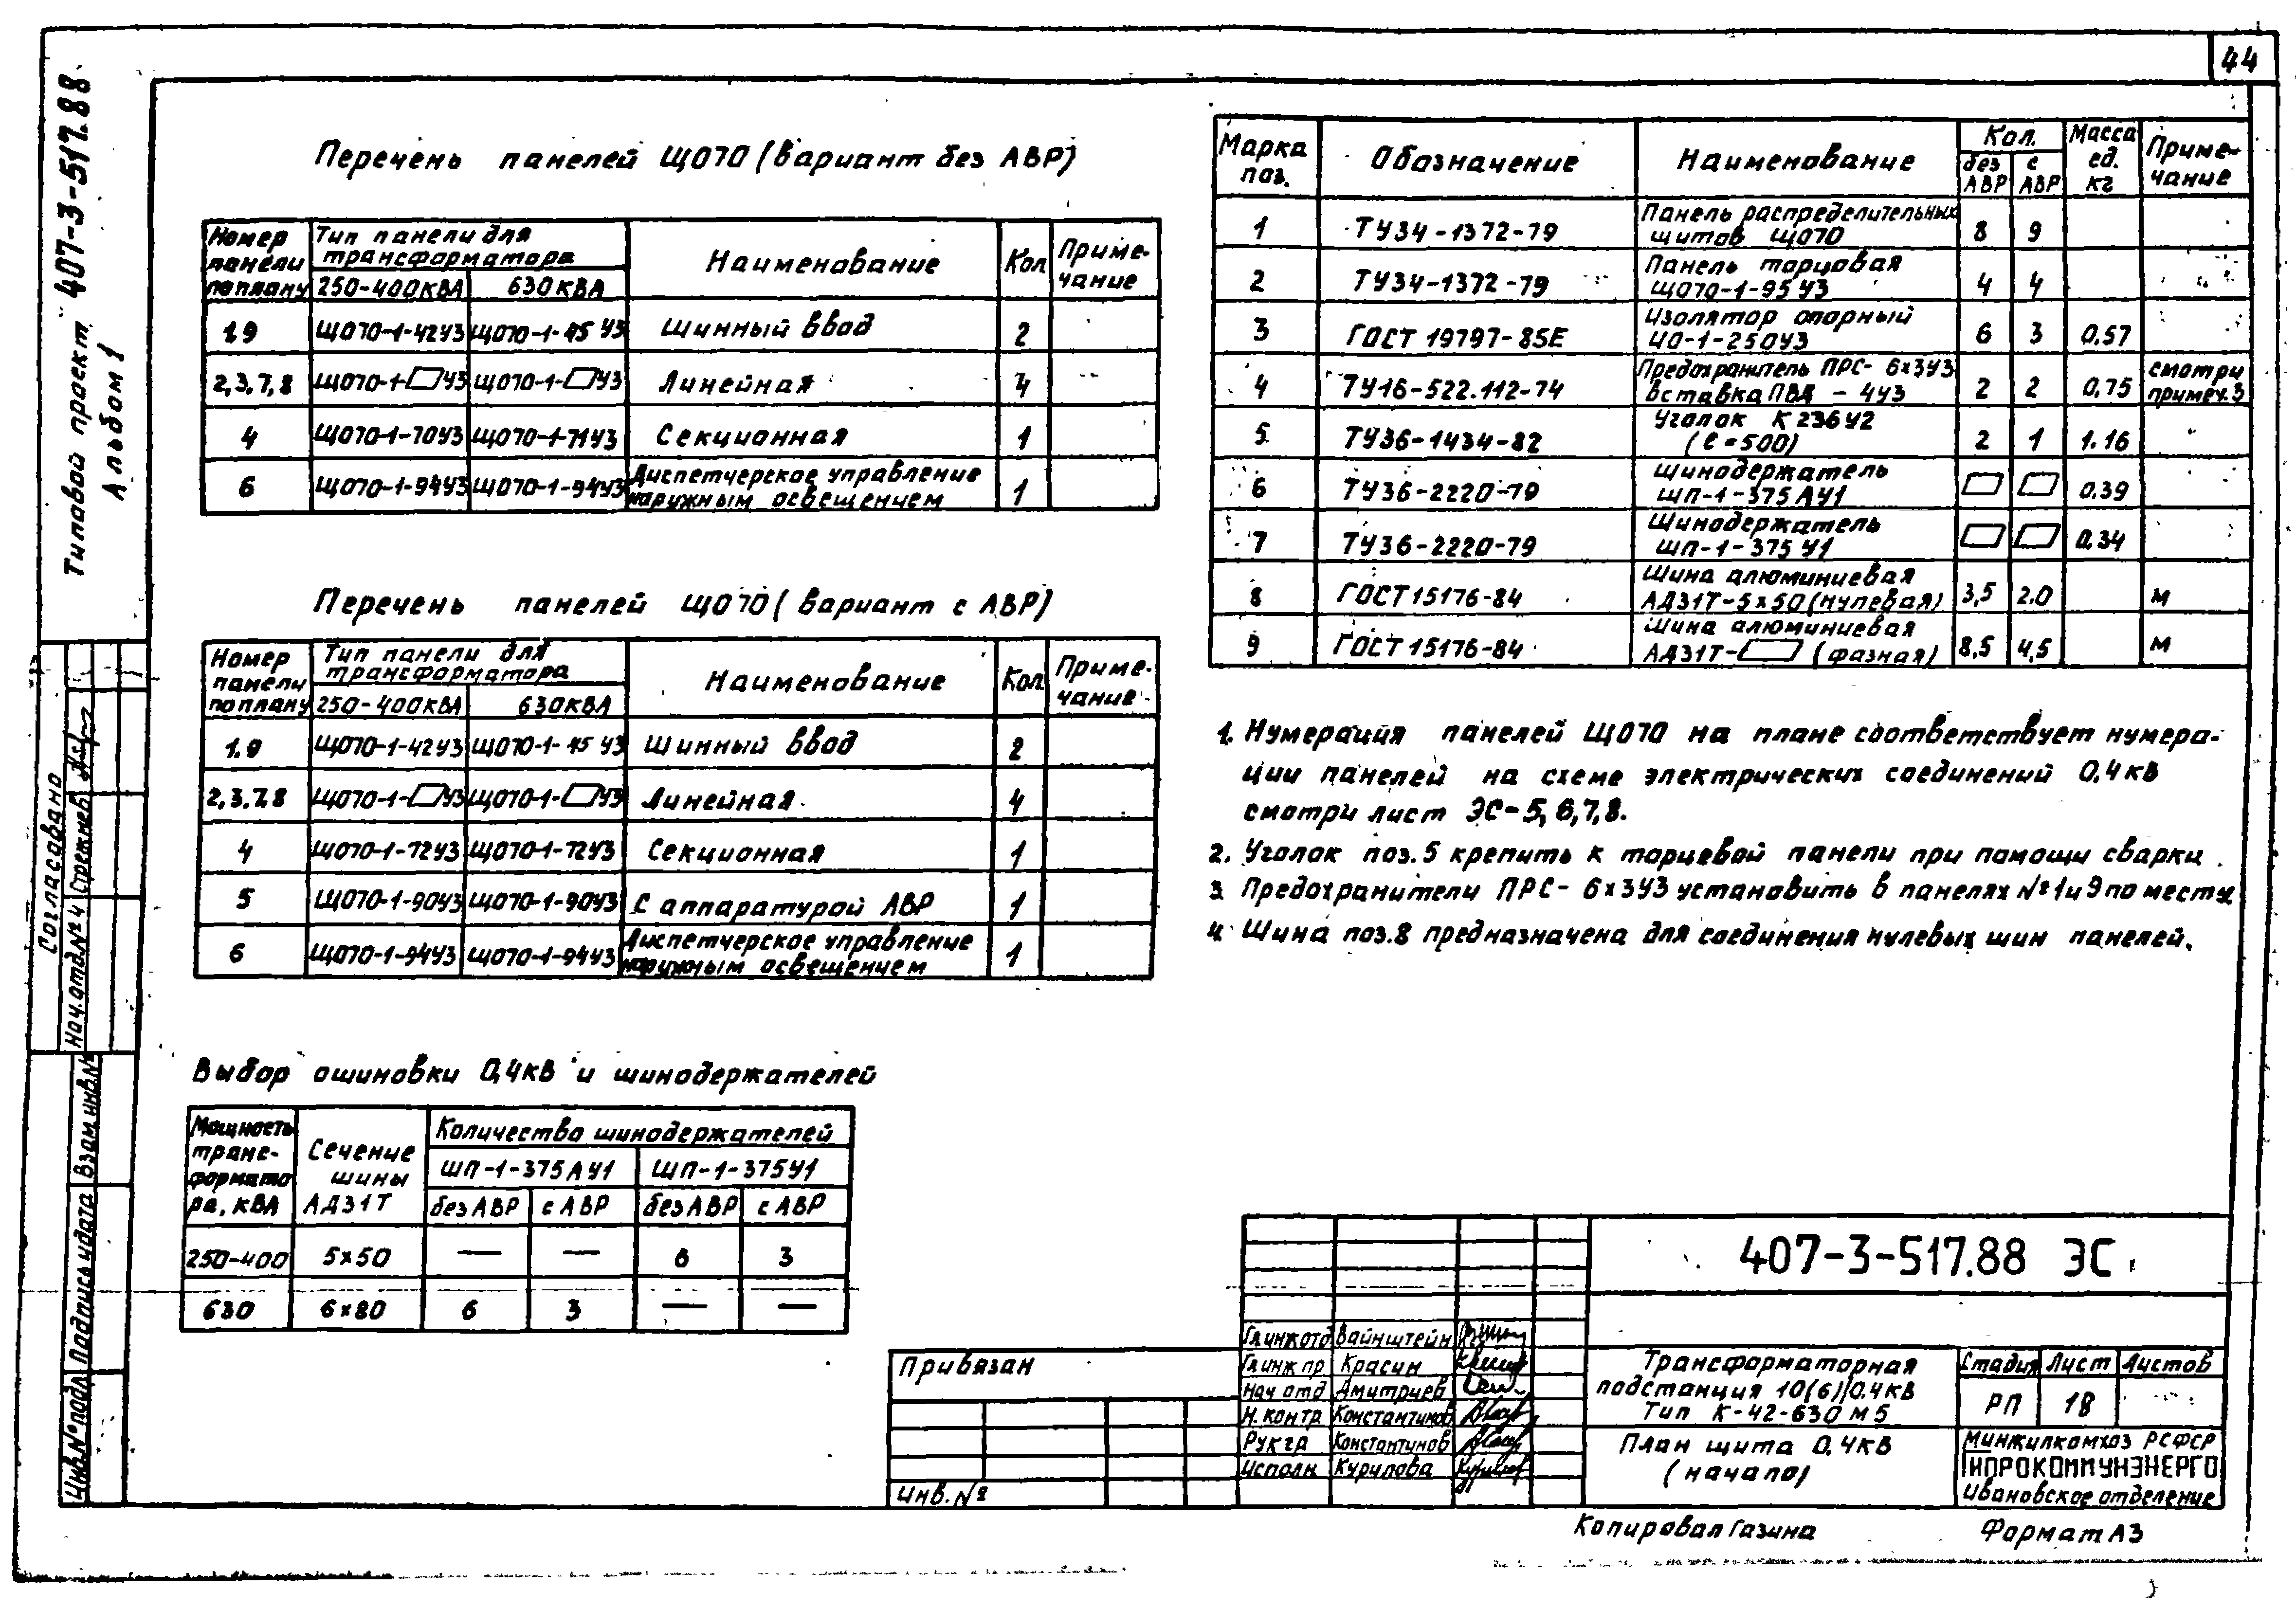 44
Типовой проект 407-3-517.88
Альбом 1
Перечень панелей ЩО70 (вариант без АВР)
Номер панели по плану | Тип панели для трансформатора | Наименование | Кол | Примечание
250-400кВА | 630кВА
1.9 | ЩО70-1-42У3 | ЩО70-1-45 У3 | Шинный ввод | 2
2,3,7,8 | ЩО70-1-▱У3 | ЩО70-1-▱У3 | Линейная | 4
4 | ЩО70-1-70У3 | ЩО70-1-71У3 | Секционная | 1
6 | ЩО70-1-94У3 | ЩО70-1-94У3 | Диспетчерское управление наружным освещением | 1
Перечень панелей ЩО70 (вариант с АВР)
Номер панели по плану | Тип панели для трансформатора | Наименование | Кол | Примечание
250-400кВА | 630кВА
1.9 | ЩО70-1-42У3 | ЩО70-1-45 У3 | Шинный ввод | 2
2,3,7,8 | ЩО70-1-▱У3 | ЩО70-1-▱У3 | Линейная | 4
4 | ЩО70-1-72У3 | ЩО70-1-72У3 | Секционная | 1
5 | ЩО70-1-90У3 | ЩО70-1-90У3 | С аппаратурой АВР | 1
6 | ЩО70-1-94У3 | ЩО70-1-94У3 | Диспетчерское управление наружным освещением | 1
Выбор ошиновки 0,4кВ и шинодержателей
Мощность трансформатора, кВА | Сечение шины АД31Т | Количество шинодержателей
ШП-1-375АУ1 | ШП-1-375У1
без АВР | с АВР | без АВР | с АВР
250-400 | 5х50 | — | — | 6 | 3
630 | 6х80 | 6 | 3 | — | —
Марка поз. | Обозначение | Наименование | Кол. | Масса ед. кг | Примечание
без АВР | с АВР
1 | ТУ34-1372-79 | Панель распределительных щитов ЩО70 | 8 | 9
2 | ТУ34-1372-79 | Панель торцовая ЩО70-1-95У3 | 4 | 4
3 | ГОСТ 19797-85Е | Изолятор опорный ИО-1-250У3 | 6 | 3 | 0,57
4 | ТУ16-522.112-74 | Предохранитель ПРС-6х3У3 Вставка ПВД-4У3 | 2 | 2 | 0,75 | смотри примеч.3
5 | ТУ36-1434-82 | Уголок К236У2 (ℓ=500) | 2 | 1 | 1.16
6 | ТУ36-2220-79 | Шинодержатель ШП-1-375АУ1 | ▱ | ▱ | 0.39
7 | ТУ36-2220-79 | Шинодержатель ШП-1-375У1 | ▱ | ▱ | 0.34
8 | ГОСТ 15176-84 | Шина алюминиевая АД31Т-5х50 (нулевая) | 3,5 | 2.0 | м
9 | ГОСТ 15176-84 | Шина алюминиевая АД31Т-▱ (фазная) | 8,5 | 4,5 | м
1. Нумерация панелей ЩО70 на плане соответствует нумера-
ции панелей на схеме электрических соединений 0,4кВ
смотри лист ЭС-5,6,7,8.
2. Уголок поз.5 крепить к торцевой панели при помощи сварки.
3. Предохранители ПРС-6х3У3 установить в панелях №1и9 по месту.
4. Шина поз.8 предназначена для соединения нулевых шин панелей.
Согласовано
Нач.отд.№4 Стрежнев
Взам.инв.№
Подпись и дата
Инв.№подл
Привязан
Инв.№
407-3-517.88 ЭС
Гл.инж.отд Вайнштейн
Гл.инж.пр Красин
Нач отд Дмитриев
Н.контр Константинов
Рук гр Константинов
Исполн Курилова
Трансформаторная
подстанция 10(6)/0.4кВ
Тип К-42-630 М5
План щита 0,4кВ
(начало)
Стадия | Лист | Листов
РП | 18
Минжилкомхоз РСФСР
ГИПРОКОММУНЭНЕРГО
Ивановское отделение
Копировал Газина
Формат А3